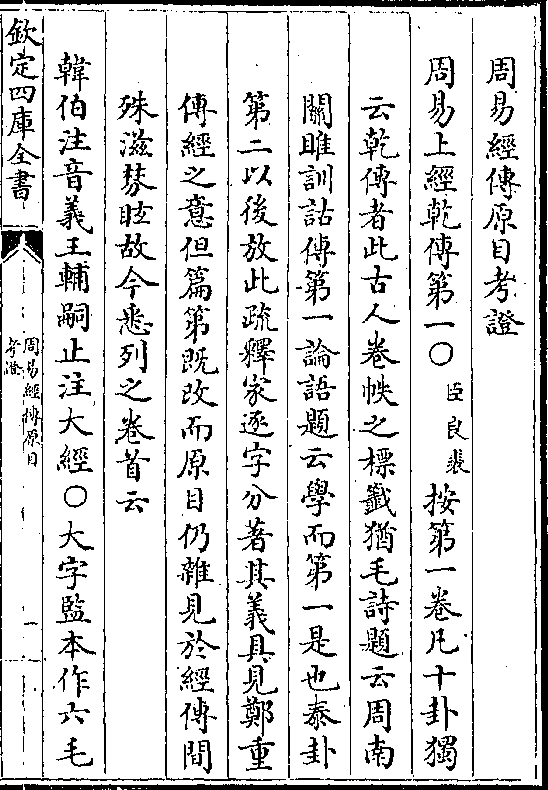 周易經傳原目考證
周易上經乾傳第一〇臣良裘按第一卷凡十卦獨
云乾傳者此古人卷帙之標籤猶毛詩題云周南
關雎訓詁傳第一論語題云學而第一是也泰卦
第二以後放此疏釋家逐字分著其義具見鄭重
傳經之意但篇第既改而原目仍雜見於經傳間
殊滋棼眩故今悉列之卷首云
韓伯注音義王輔嗣止注大經〇大字監本作六毛
欽定四庫全書
周易經傳原目
考證
一